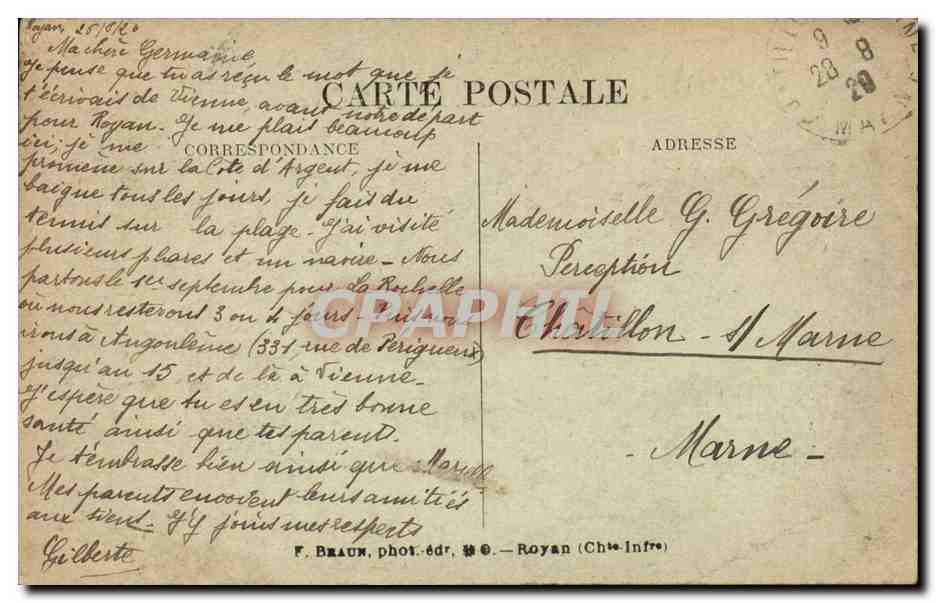 Royan, 26/8/20
Ma chère Germaine
Je pense que tu as reçu le mot que je
t'écrivais de Vienne, avant notre départ
pour Royan. Je me plais beaucoup
ici, je me
promène sur la Cote d'Argent, je me
baigne tous les jours, je fais du
tennis sur la plage. J'ai visité
plusieurs phares et un navire - Nous
partons le 1er septembre pour La Rochelle
ou nous resterons 3 ou 4 jours - Puis nous
irons à Angoulême (331 rue de Périgueux)
jusqu'au 15 et de là à Vienne -
J'espère que tu es en très bonne
santé ainsi que tes parents.
Je t'embrasse bien ainsi que
Mes parents envovent leurs amitiés
aux tiens - J'y joins mes respects
Gilberte
CARTE POSTALE
CORRESPONDANCE
ADRESSE
Mademoiselle G. Grégoire
Perception
Châtillon - s/ Marne
- Marne -
9 8
28
20
MA
CPAPHIL
F. BRAUN, phot.-édr, — ROYAN (Chte-Infre)